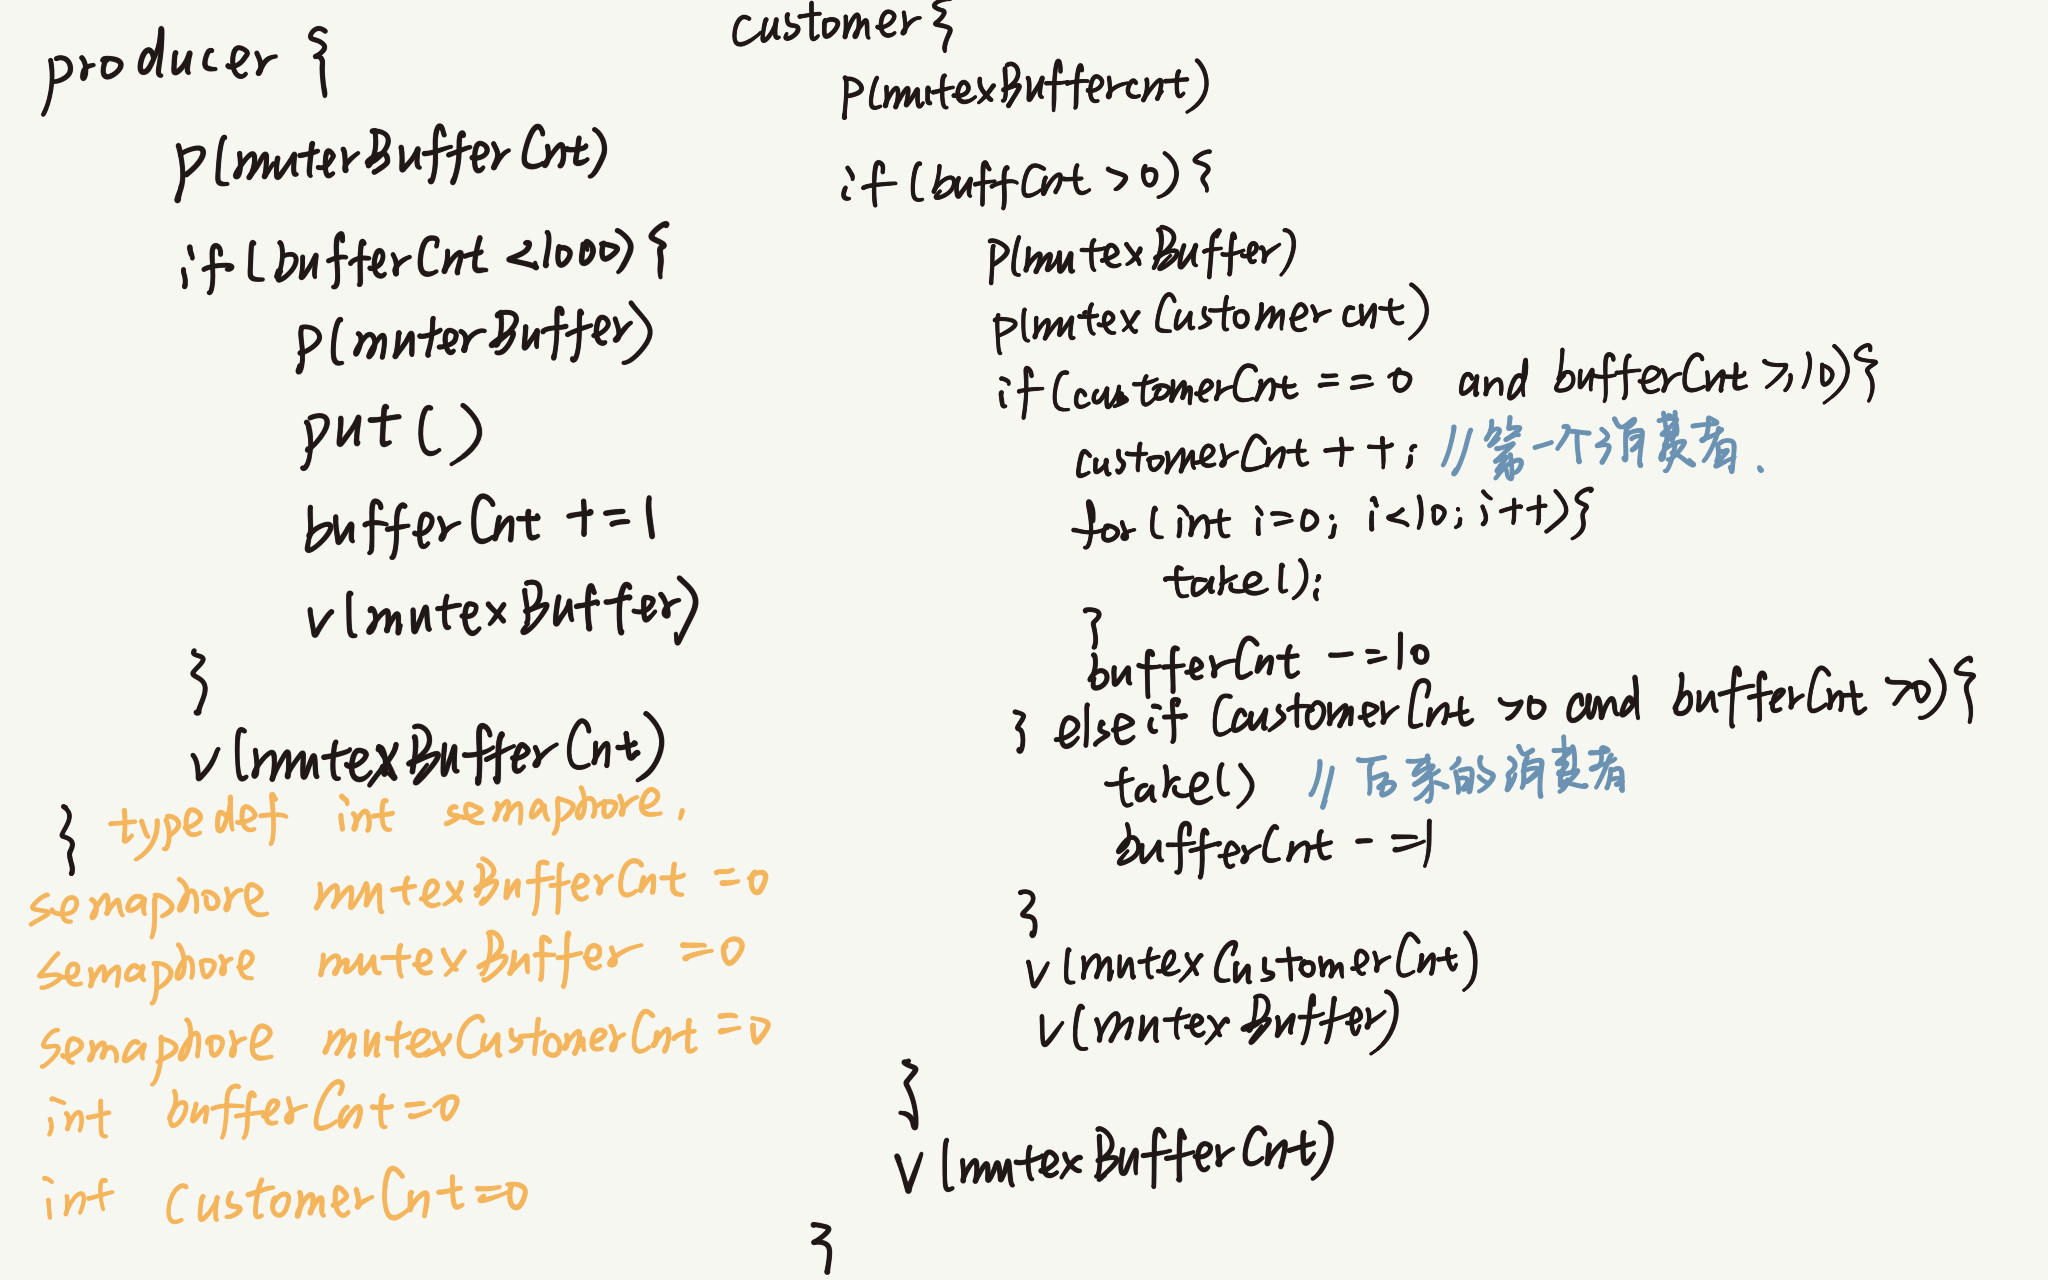 producer {
p(muterBufferCnt)
if(bufferCnt <1000){
p(muterBuffer)
put()
bufferCnt +=1
v(mutexBuffer)
}
v(mutexBufferCnt)
}
typedef int semaphore.
semaphore mutexBufferCnt =0
semaphore mutexBuffer =0
semaphore mutexCustomerCnt =0
int bufferCnt=0
int CustomerCnt=0
customer{
p(mutexBuffercnt)
if(buffCnt >0){
p(mutexBuffer)
p(mutexCustomercnt)
if(customerCnt == 0 and bufferCnt ⩾10){
customerCnt ++; //第一个消费者.
for(int i=0; i<10; i++){
take();
}
bufferCnt -=10
} else if CaustomerCnt >0 and bufferCnt >0){
take() //后来的消费者
bufferCnt -=1
}
v(mutexCustomerCnt)
v(mutexBuffer)
}
v(mutexBufferCnt)
}